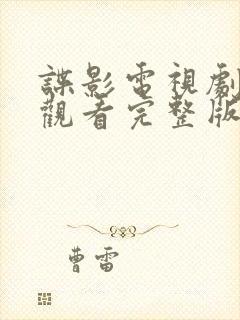 諜影電視劇
觀看完整版
曹雷